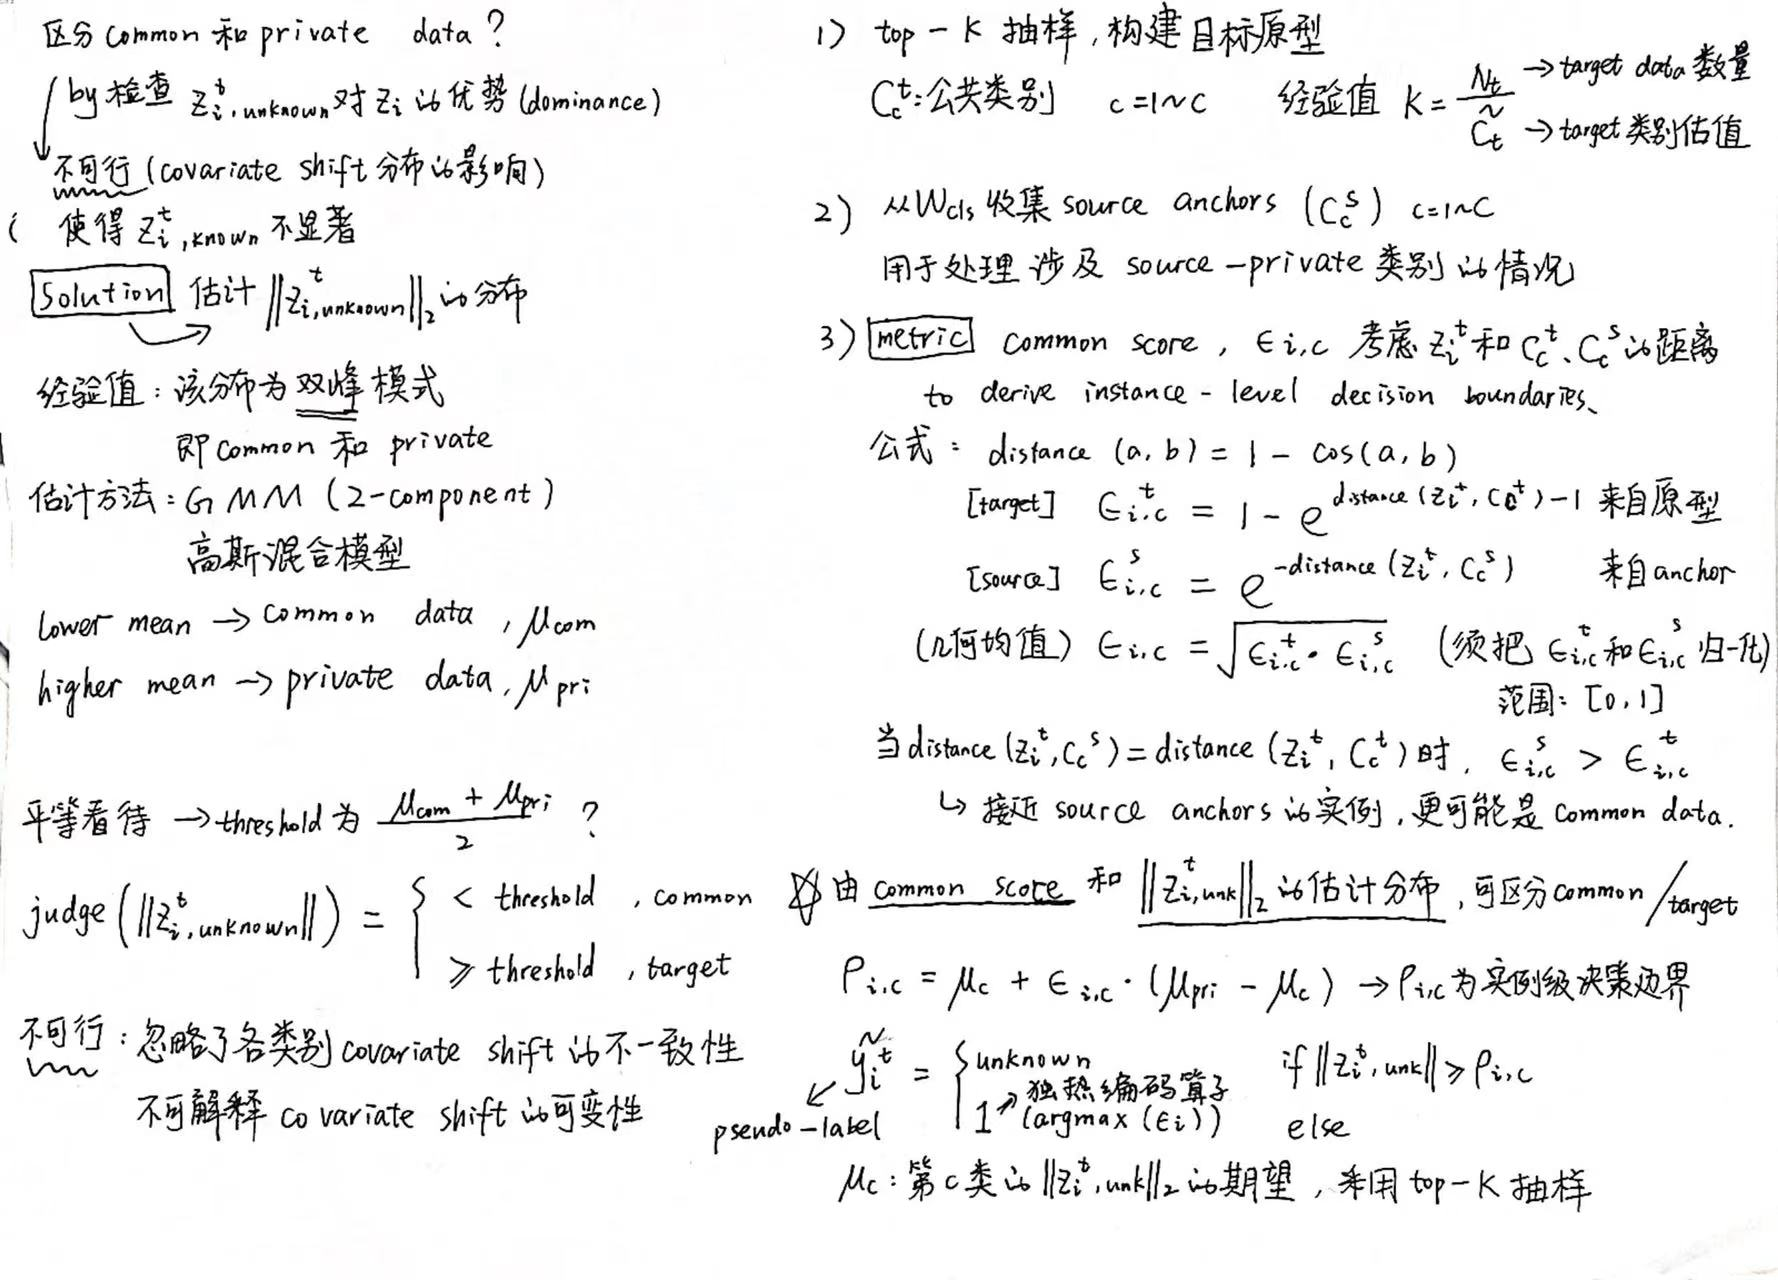 区分 common 和 private data ?
by 检查 z_i^t,unknown 对 z_i 的优势 (dominance)
不可行 (covariate shift 分布的影响)
( 使得 z_i^t,known 不显著
Solution 估计 ||z_i^t,unknown||_2 的分布
经验值：该分布为双峰模式
即 common 和 private
估计方法：GMM (2-component)
高斯混合模型
lower mean → common data , μ_com
higher mean → private data , μ_pri
平等看待 → threshold 为 (μ_com + μ_pri)/2 ?
judge (||z_i^t,unknown||) = { < threshold , common
≥ threshold , target
不可行：忽略了各类别 covariate shift 的不一致性
不可解释 covariate shift 的可变性
1) top-K 抽样, 构建目标原型
C_c^t:公共类别 c=1~C 经验值 K = N_t / C̃_t → target data 数量
→ target 类别估值
2) 从 W_cls 收集 source anchors (C_c^s) c=1~C
用于处理涉及 source-private 类别的情况
3) metric common score , ϵ_i,c 考虑 z_i^t 和 C_c^t、C_c^s 的距离
to derive instance-level decision boundaries、
公式：distance (a, b) = 1 - cos(a, b)
[target] ϵ_i,c^t = 1 - e^{distance(z_i^t, C_c^t) - 1} 来自原型
[source] ϵ_i,c^s = e^{-distance(z_i^t, C_c^s)} 来自 anchor
(几何均值) ϵ_i,c = √(ϵ_i,c^t · ϵ_i,c^s) (须把 ϵ_i,c^t 和 ϵ_i,c^s 归一化)
范围：[0, 1]
当 distance (z_i^t, C_c^s) = distance (z_i^t, C_c^t) 时, ϵ_i,c^s > ϵ_i,c^t
↳ 接近 source anchors 的实例, 更可能是 common data.
☆ 由 common score 和 ||z_i^t,unk||_2 的估计分布, 可区分 common / target
ρ_i,c = μ_c + ϵ_i,c · (μ_pri - μ_c) → ρ_i,c 为实例级决策边界
ỹ_i^t = { unknown if ||z_i^t,unk|| ≥ ρ_i,c
→ 独热编码算子
pseudo-label 1 (argmax (ϵ_i)) else
μ_c : 第 c 类的 ||z_i^t,unk||_2 的期望, 采用 top-K 抽样